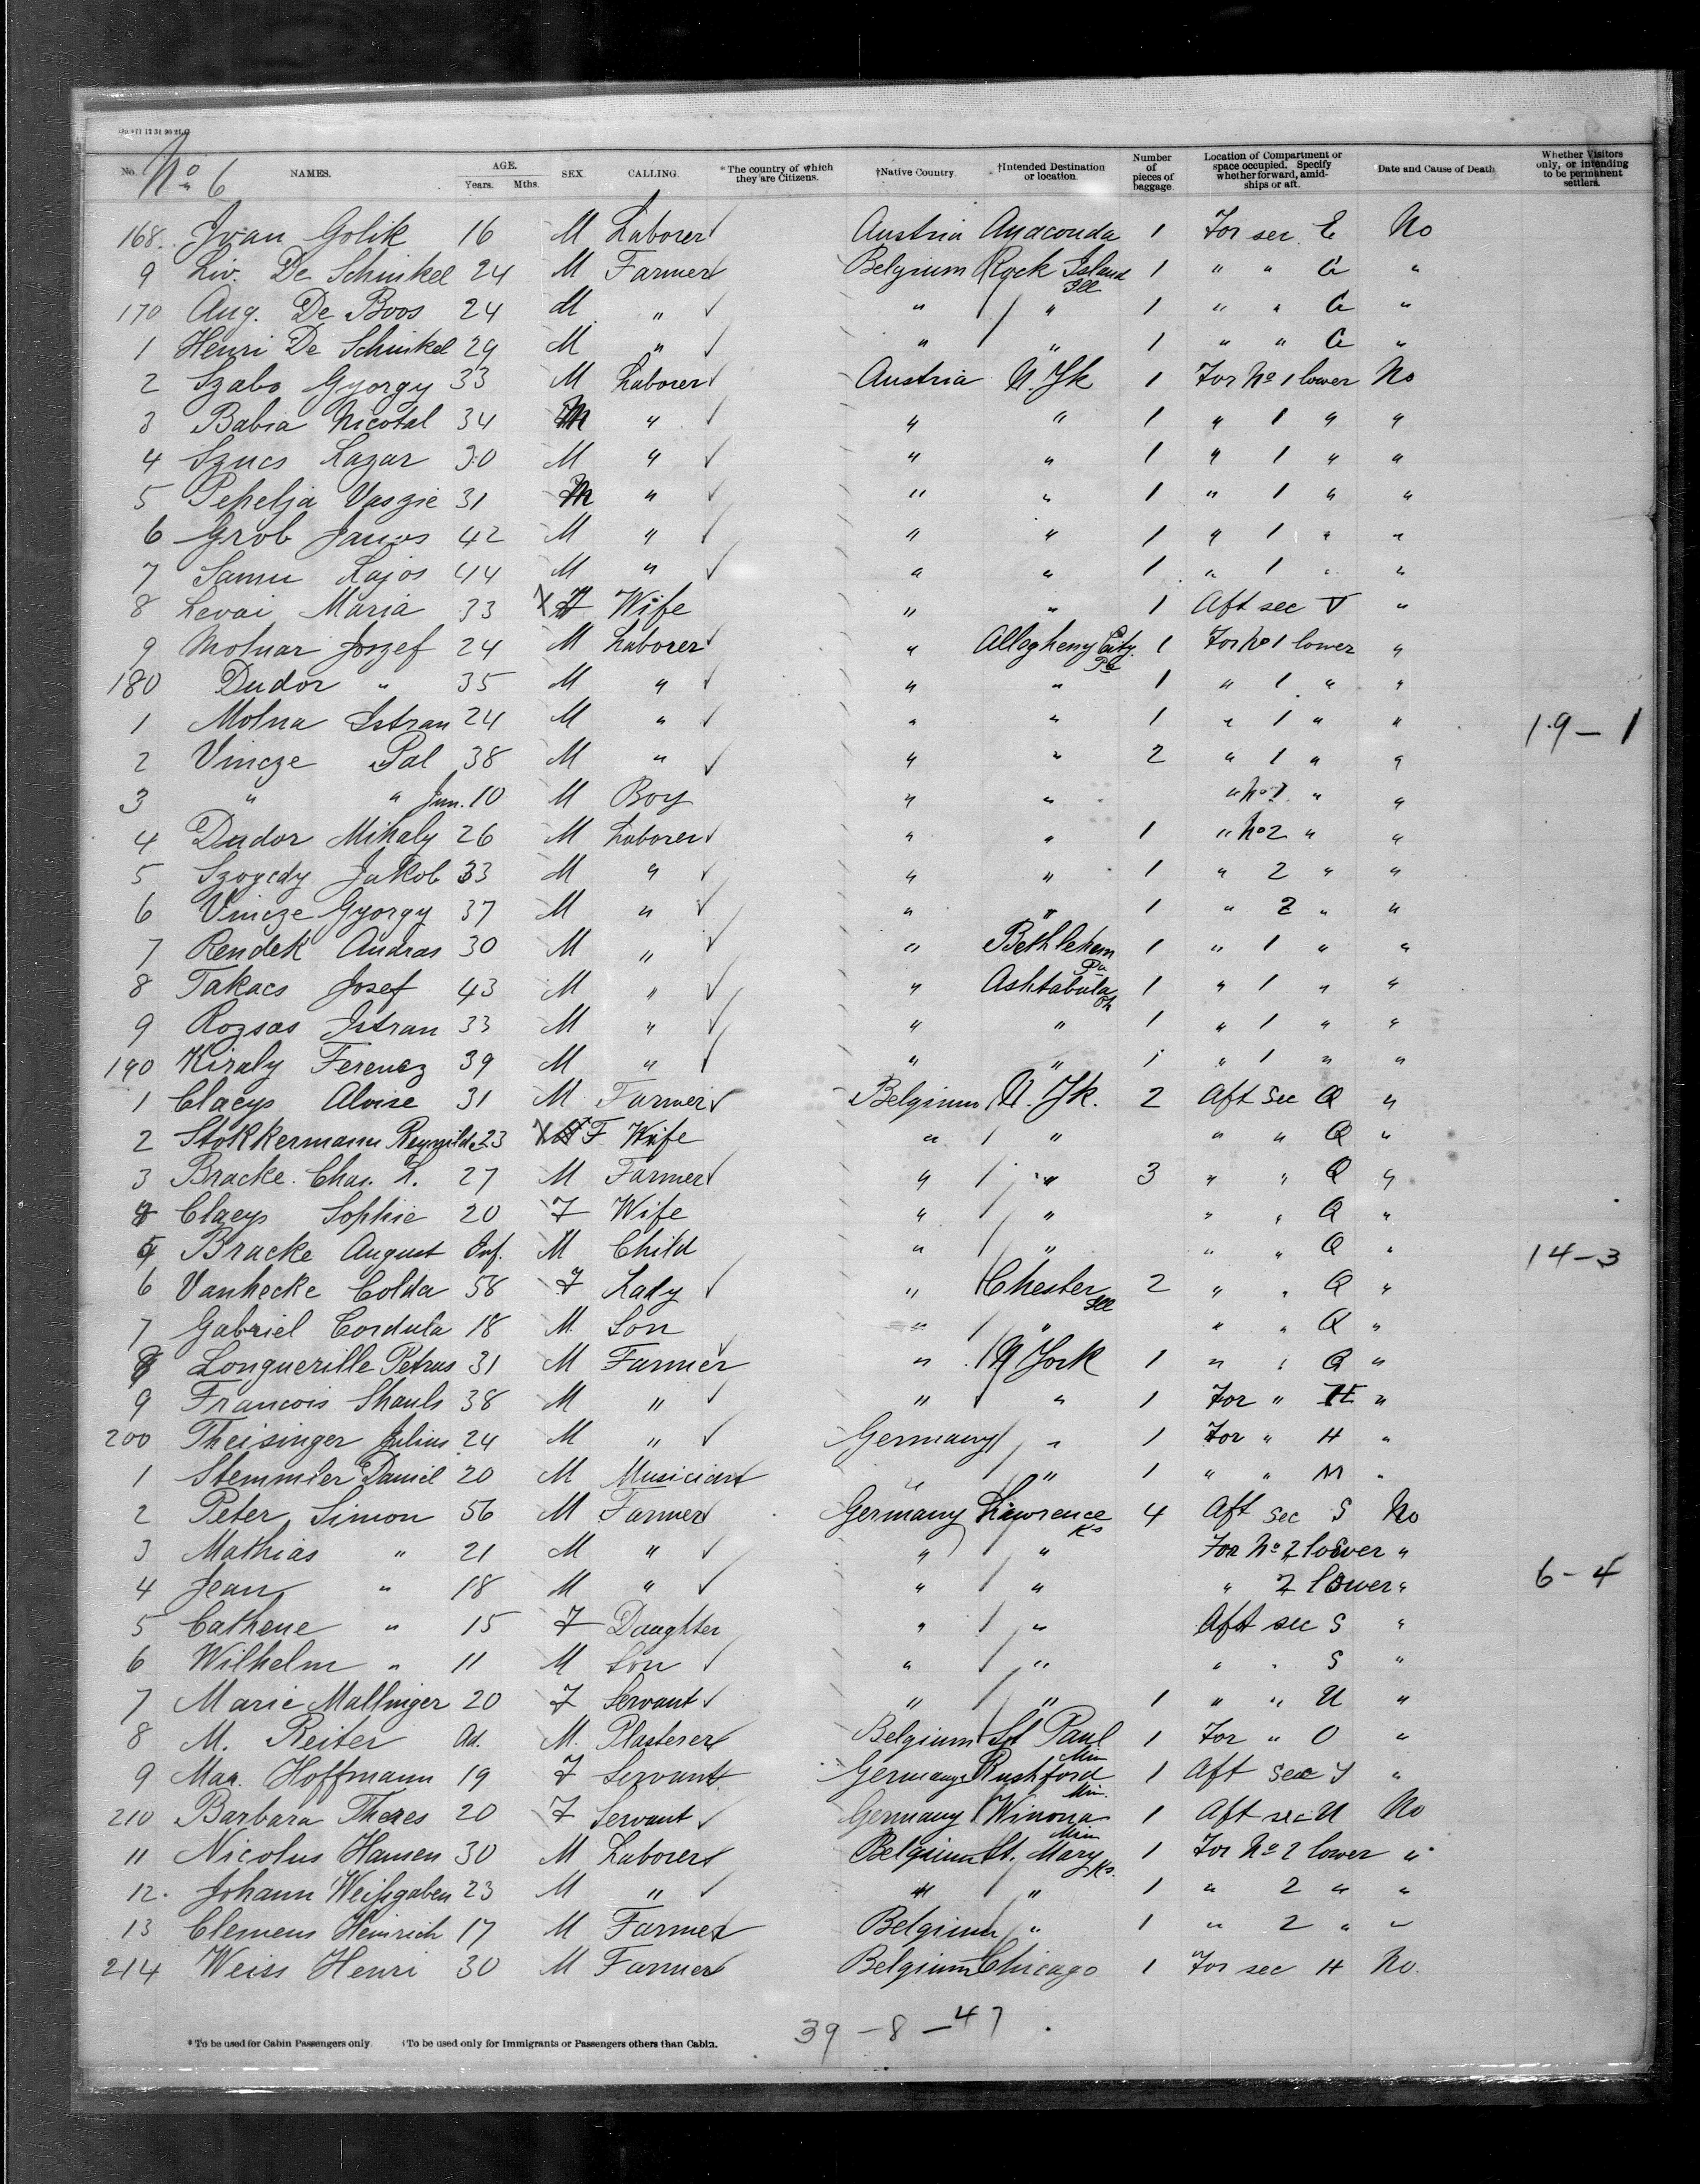 No 6
No. NAMES. AGE. Years. Mths. SEX. CALLING. *The country of which they are Citizens. †Native Country. †Intended Destination or location. Number of pieces of baggage. Location of Compartment or space occupied. Specify whether forward, amidships or aft. Date and Cause of Death. Whether Visitors only, or intending to be permanent settlers.
168. Ivan Golik 16 M Laborer Austria Anaconda 1 For sec E No
9 Liv. De Schinkel 24 M Farmer Belgium Rock Island Ill 1 " " G "
170 Aug. De Boos 24 M " " " 1 " " G "
1 Henri De Schinkel 29 M " " " 1 " " G "
2 Szabo Gyorgy 33 M Laborer Austria N. Yk 1 For No 1 lower No
3 Babia Nicotal 34 M " " " 1 " 1 " "
4 Szucs Lazar 30 M " " " 1 " 1 " "
5 Pepelja Vaszie 31 M " " " 1 " 1 " "
6 Grob Janos 42 M " " " 1 " 1 " "
7 Samu Lajos 44 M " " " 1 " 1 " "
8 Levai Maria 33 X F Wife " " 1 Aft sec V "
9 Molnar Joszef 24 M Laborer " Allegheny City. Pa 1 For No 1 lower "
180 Dudor " 35 M " " " 1 " 1 " "
1 Molna Istvan 24 M " " " 1 " 1 " " 19 – 1
2 Vincze Pal 38 M " " " 2 " 1 " "
3 " " Jun. 10 M Boy " " " No 1 " "
4 Dudor Mihaly 26 M Laborer " " 1 " No 2 " "
5 Szogedy Jakob 33 M " " " 1 " 2 " "
6 Vincze Gyorgy 37 M " " " 1 " 2 " "
7 Rendek Andras 30 M " " Bethlehem Pa 1 " 1 " "
8 Takacs Josef 43 M " " Ashtabula Oh 1 " 1 " "
9 Rozsas Istvan 33 M " " " 1 " 1 " "
190 Kiraly Ferencz 39 M " " " 1 " 1 " "
1 Claeys Aloise 31 M Farmer Belgium N. Yk. 2 Aft Sec Q "
2 Stokkermann Reynilde 23 X F Wife " " " " Q "
3 Bracke Chas. L. 27 M Farmer " " 3 " " Q "
4 Claeys Sophie 20 F Wife " " " " Q "
5 Bracke August Inf. M Child " " " " Q " 14 – 3
6 Vanhecke Colda 58 F Lady " Chester Ill 2 " " Q "
7 Gabriel Cordula 18 M Son " " " " Q "
8 Longuerille Petrus 31 M Farmer " N York 1 " " Q "
9 Francois Shauls 38 M " " " 1 For " H "
200 Theisinger Julius 24 M " Germany " 1 For " H "
1 Stemmler Daniel 20 M Musician " " 1 " " M "
2 Peter Simon 56 M Farmer Germany Lawrence Ks 4 Aft Sec S No
3 Mathias " 21 M " " " For No 2 lower "
4 Jean " 18 M " " " " 2 lower " 6 – 4
5 Cathene " 15 F Daughter " " Aft sec S "
6 Wilhelm " 11 M Son " " " " S "
7 Marie Mallinger 20 F Servant " " 1 " " U "
8 M. Reiter Ad. M. Plasterer Belgium St Paul Min 1 For " O "
9 Mar. Hoffmann 19 F Servant Germany Rushford Min. 1 Aft Sec Y "
210 Barbara Theres 20 F Servant Germany Winona Min 1 Aft sec U No
11 Nicolus Hansen 30 M Laborer Belgium St. Mary Ks. 1 For No 2 lower "
12. Johann Weißgaben 23 M " " " 1 " 2 " "
13 Clemens Heinrich 17 M Farmer Belgium " 1 " 2 " "
214 Weiss Henri 30 M Farmer Belgium Chicago 1 For sec H No.
39 – 8 – 47
* To be used for Cabin Passengers only. †To be used only for Immigrants or Passengers others than Cabin.